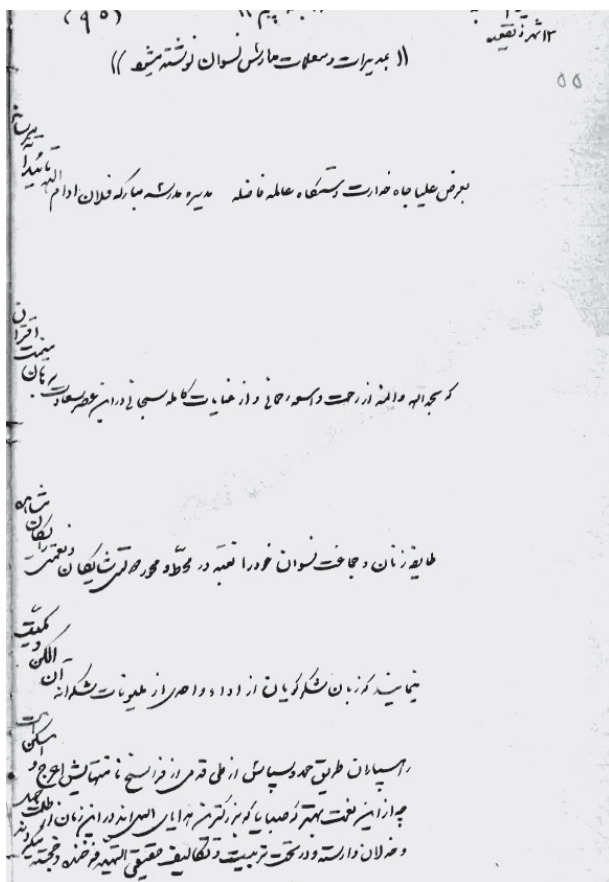 (۹۵)
۱۲ شهر ذیقعده
((بمدیرات و معلمات مدارس نسوان نوشته میشود))
۵۵
بعرض علیا جاه خدارت دستگاه عالمه فاضله مدیره مدرسه مبارکه فلان ادام الله تائیداته میرساند
که بحمدالله والمنه از رحمت واسعه رحمانی و از عنایات کامله سبحانی در این عصر سعادت میمنت اقتران
طایفه زنان و جماعت نسوان خود را در و نعمتی رایگان مشاهده
مینمایند که زبان شکرگویان از اداء واحدی از ملیونات شکرانه آن الکن و
راهسپاران طریق حمد و سپاس از طی قدمی از فراسخ تا منتهایش اعرج و است
چه از این نعمت بهتر که صبایا که بزرگترین هدایای الهی‌اند در این زمان از ظلمت جهل
و خذلان وارسته و در تحت تربیت و تکالیف حقیقی الهیه فرخنده و خجسته میگردند